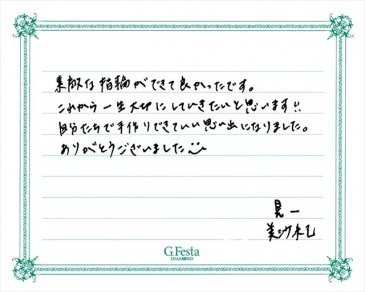 素敵な指輪ができて良かったです。
これから一生大切にしていきたいと思います!!
自分たちで手作りできていい思い出になりました。
ありがとうございました
晃一
美沙紀
G.Festa
DIAMOND